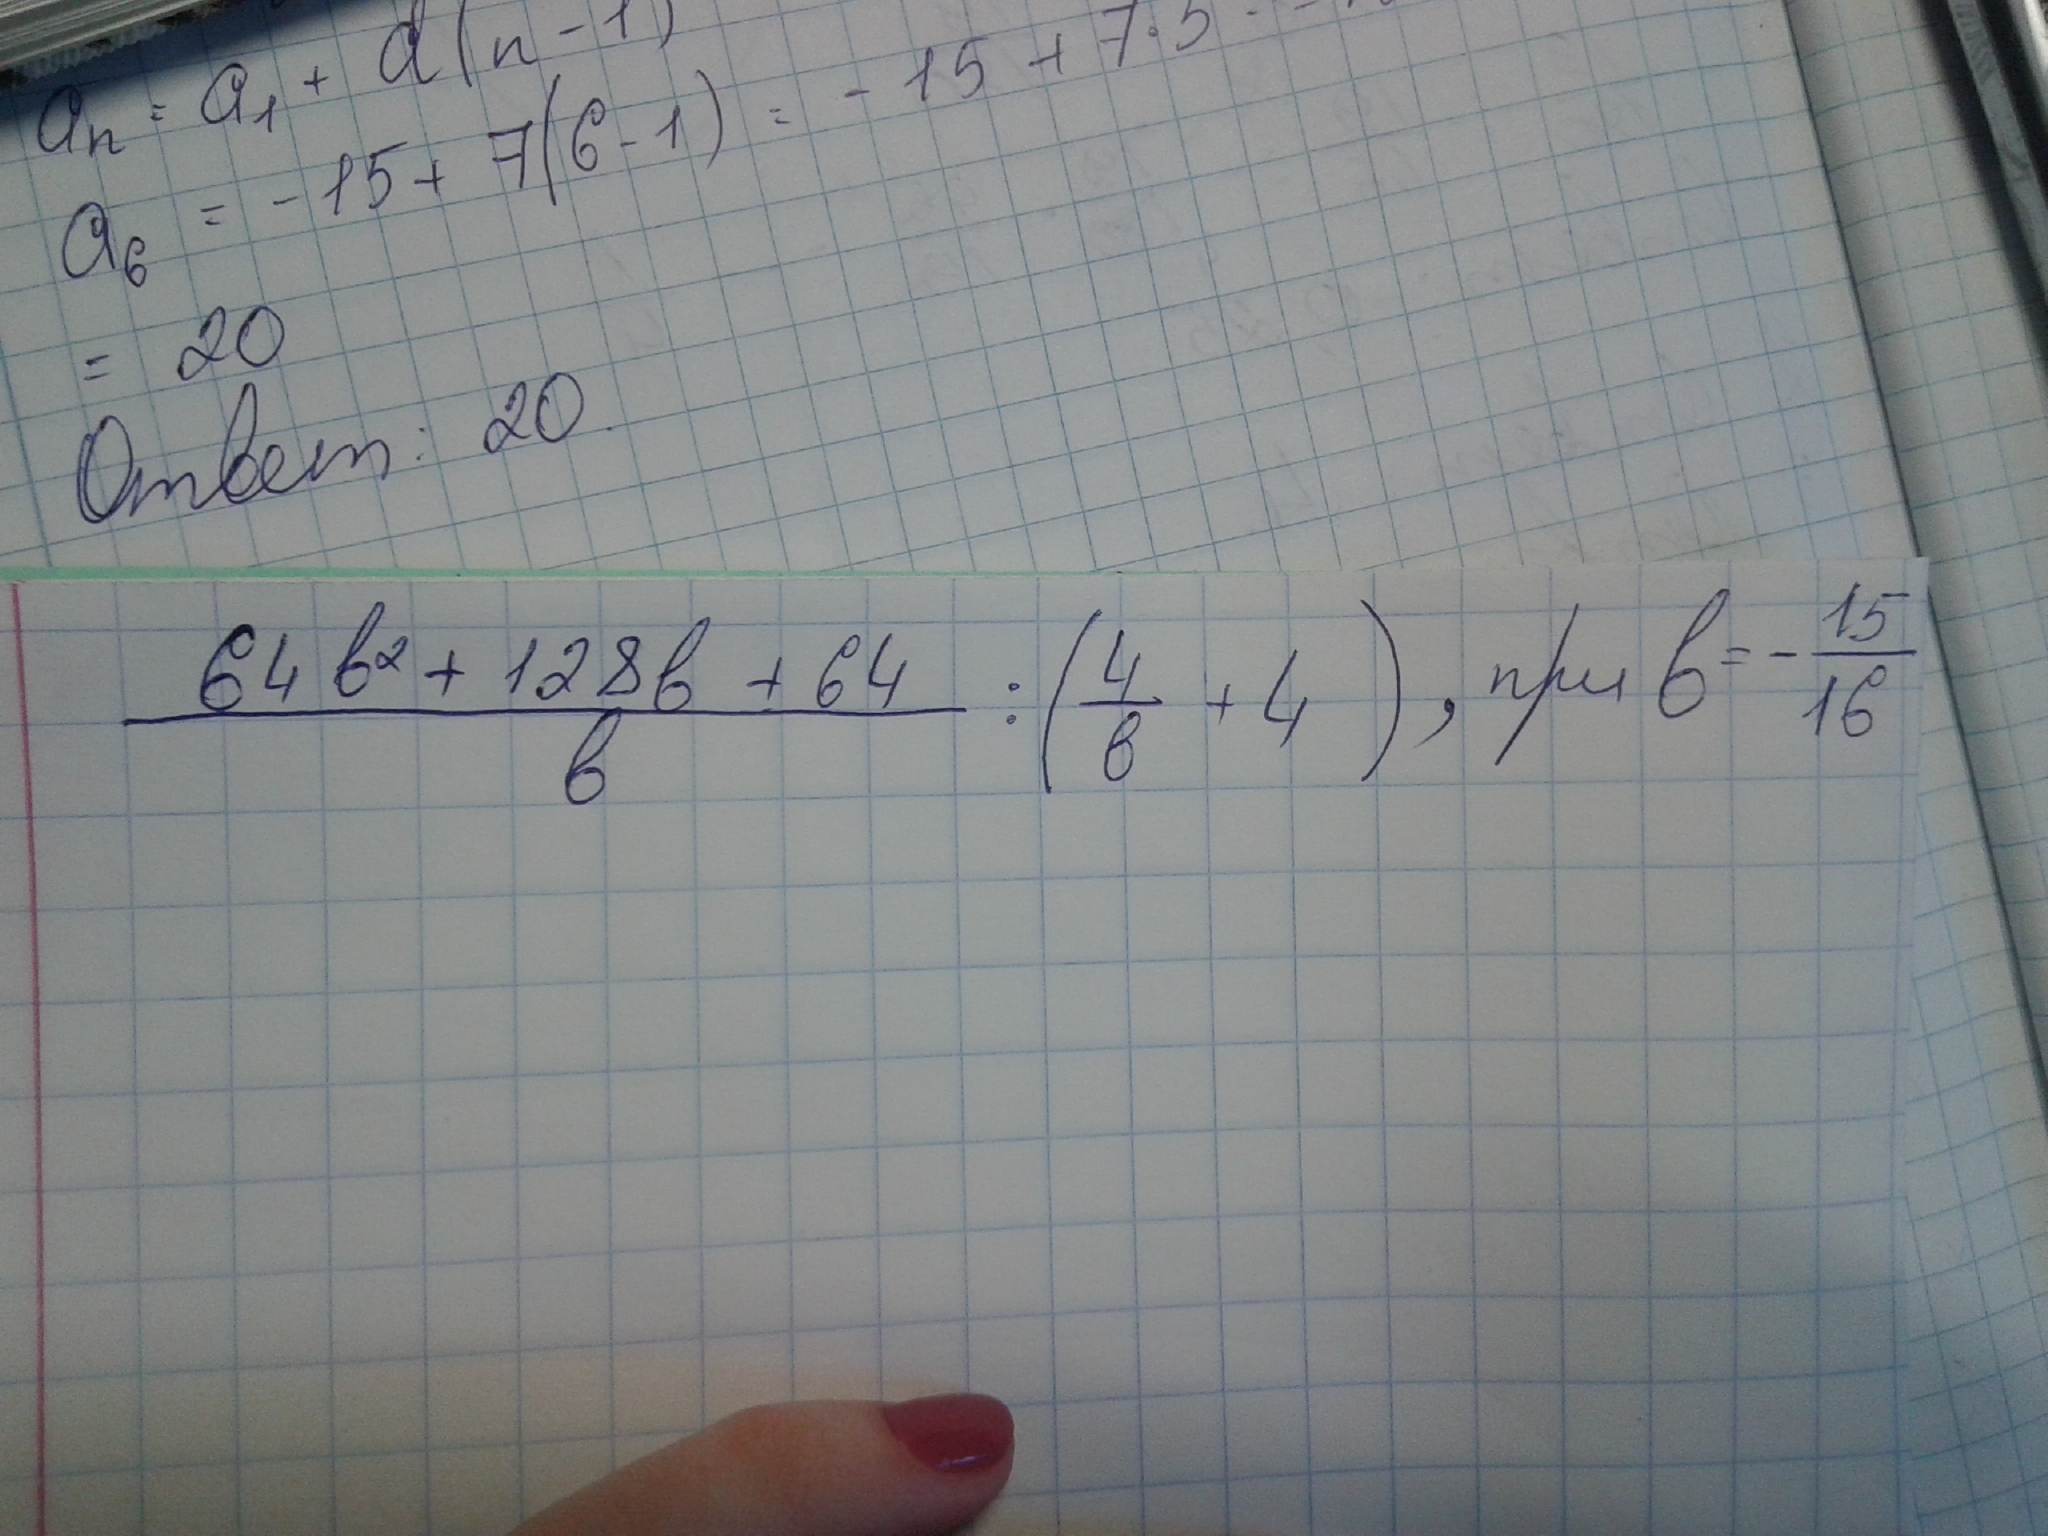 aₙ = a₁ + d(n-1)
a₆ = -15 + 7(6-1) = -15 + 7·5
= 20
Ответ: 20.
(64b² + 128b + 64)/b : (4/b + 4), при b = -15/16